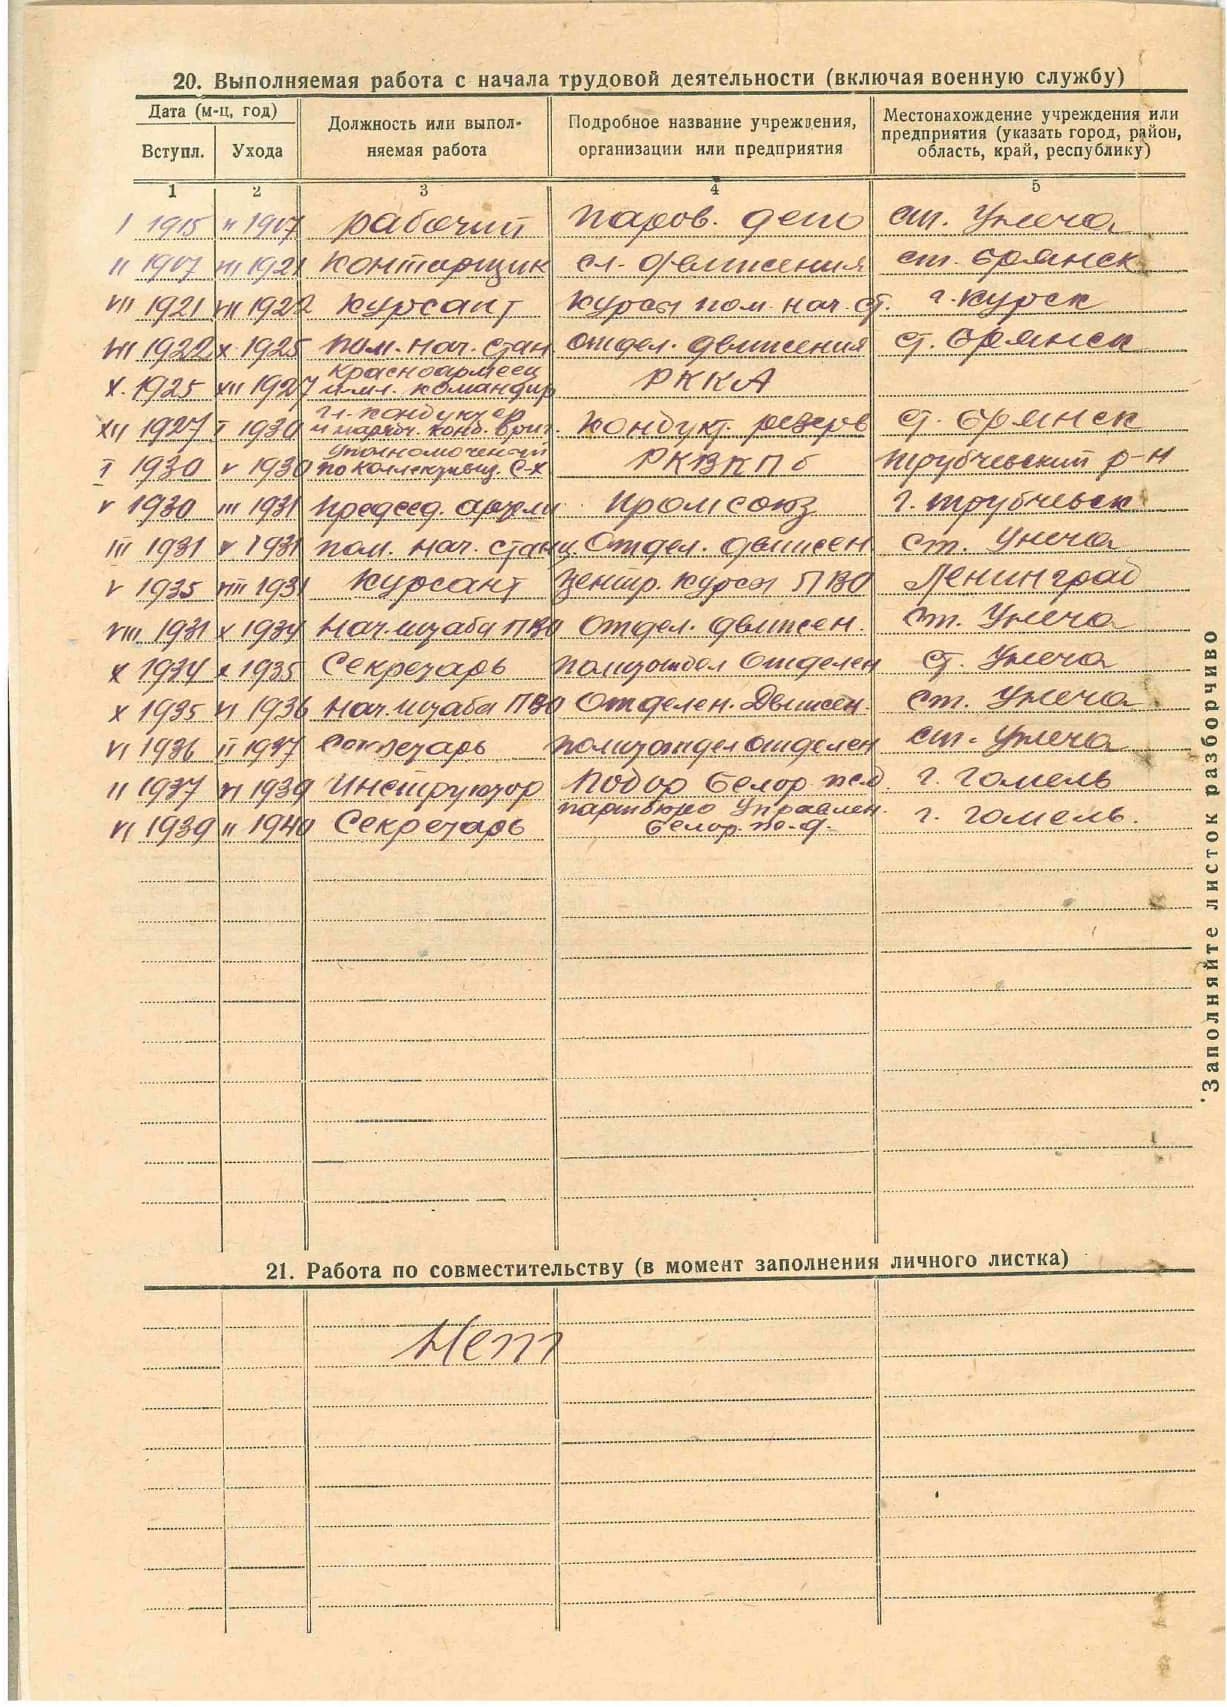 20. Выполняемая работа с начала трудовой деятельности (включая военную службу)
Дата (м-ц, год)
Вступл. Ухода
Должность или выпол-
няемая работа
Подробное название учреждения,
организации или предприятия
Местонахождение учреждения или
предприятия (указать город, район,
область, край, республику)
1 2 3 4 5
I 1915 II 1917 рабочий паров. депо ст. Унеча
II 1917 VII 1921 Конторщик сл. движения ст. Брянск
VII 1921 VII 1922 Курсант Курсы пом. нач. ст. г. Курск
VII 1922 X 1925 пом. нач. стан. отдел. движения ст. Брянск
X 1925 XII 1927 Красноармеец
и мл. командир РККА
XII 1927 I 1930 гл. кондуктер
и конд. бриг. Кондукт. резерв ст. Брянск
I 1930 V 1930 Уполномоченый
по коллективиз. С-Х РКВКПб Трубчевский р-н
V 1930 III 1931 Председ. артели Промсоюз г. Трубчевск
III 1931 V 1931 пом. нач. станц. Отдел. движен ст. Унеча
V 1935 VIII 1931 Курсант Центр. Курсы ПВО Ленинград
VIII 1931 X 1934 Нач. штаба ПВО Отдел. движен. ст. Унеча
X 1934 X 1935 Секретарь политотдел Отделен ст. Унеча
X 1935 VI 1936 Нач. штаба ПВО Отделен. Движен. ст. Унеча
VI 1936 II 1937 Секретарь политотдел отделен ст. Унеча
II 1937 VI 1939 Инструктор Белор. жел г. Гомель
VI 1939 II 1940 Секретарь партбюро Управлен.
Белор. ж.-д. г. Гомель.
Заполняйте листок разборчиво
21. Работа по совместительству (в момент заполнения личного листка)
Нет